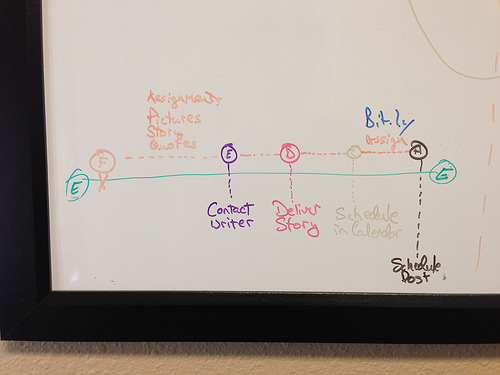 Assignment
Pictures
Story
Quotes
Bit.ly
Assign
F
E
D
E
G
Contact
writer
Deliver
Story
Schedule
in Calendar
Schedule
Post